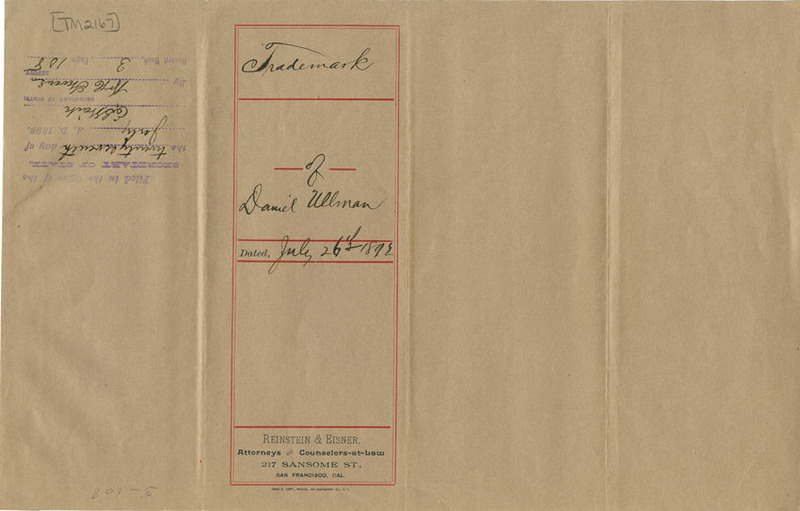 [TM2167]
Trademark
of
Daniel Ullman
Dated, July 26th 1892
REINSTEIN & EISNER.
Attorneys and Counselors-at-Law
217 SANSOME ST.,
SAN FRANCISCO, CAL.
Filed in the Office of the
SECRETARY OF STATE
the twenty seventh day of
July A. D. 1892.
SECRETARY OF STATE
By
DEPUTY
Record Book, 3 Page 108
3-108